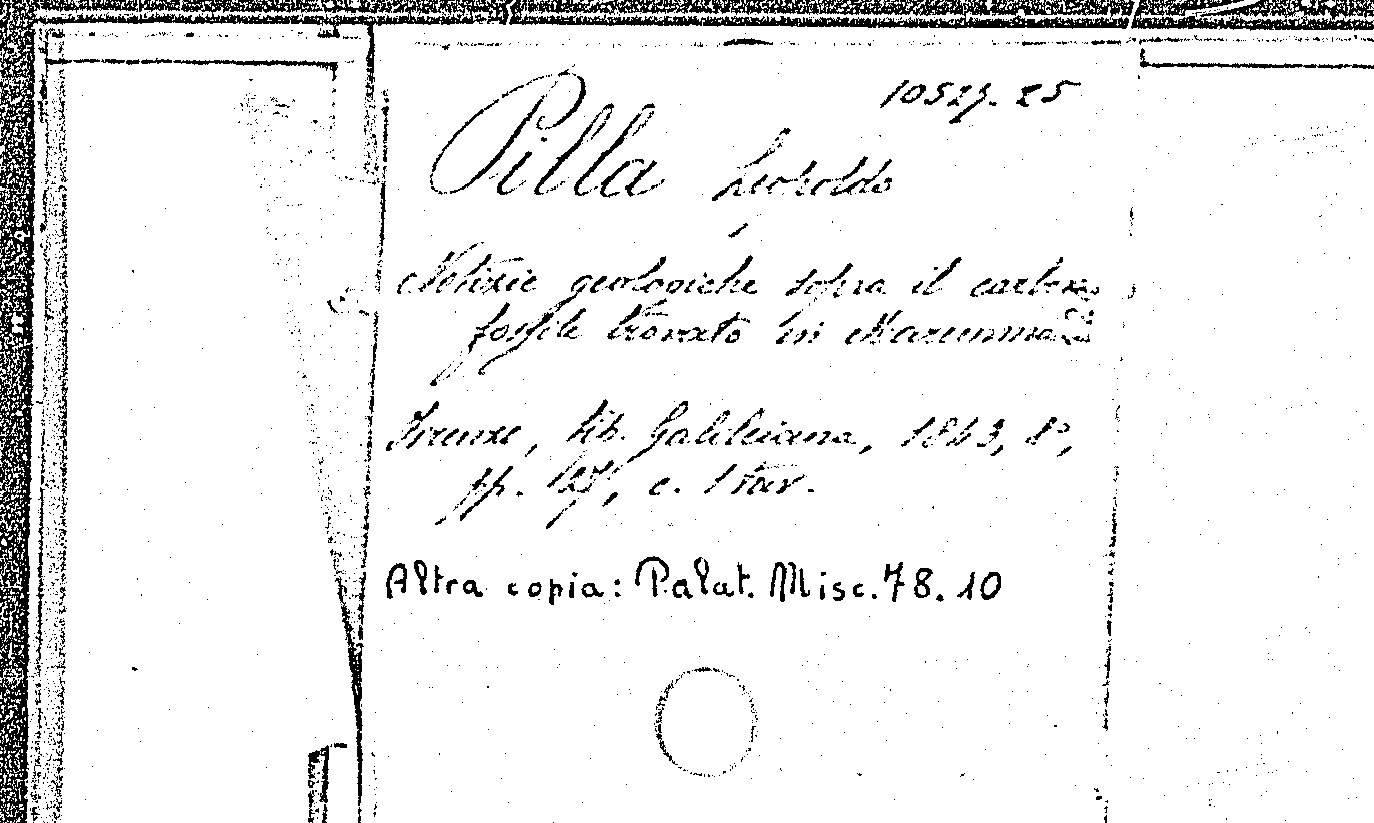 10529. 25
Pilla Leopoldo
Notizie geologiche sopra il carbone
fossile trovato in Maremma
Firenze, tip. Galileiana, 1843, 8°,
pp. 27, c. 1 tav.
Altra copia: Palat. Misc. 78. 10